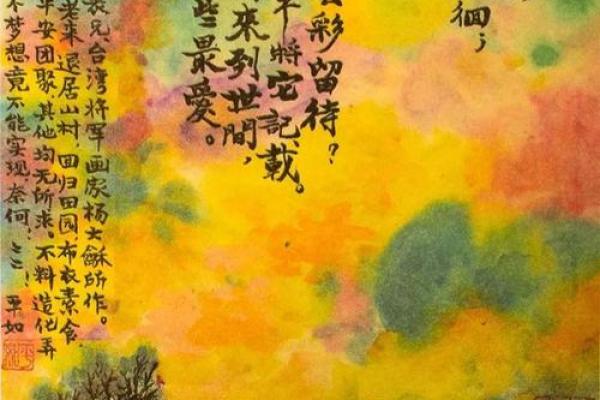 徊；
彩留待？
將它記載。
來到世間，
些最愛。
表兄，台湾将军画家杨大龢所作。
老来退居山村，回归田园，布衣素食，
平安团聚，其他均无所求。不料造化弄
梦想竟不能实现，奈何，〻〻！平如